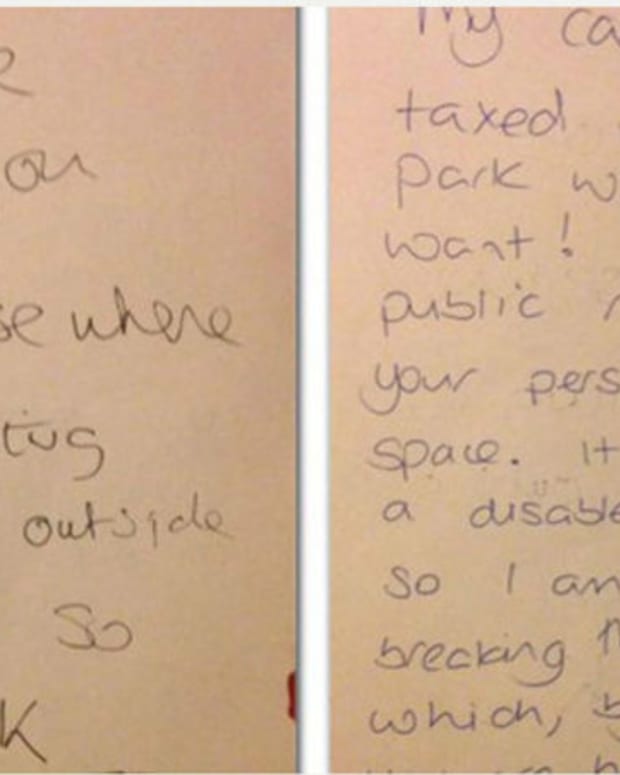 ou
se where
outside
so
K
My ca
taxed
park w
want!
public r
your pers
space. it
a disable
so I am
brecking
which, b